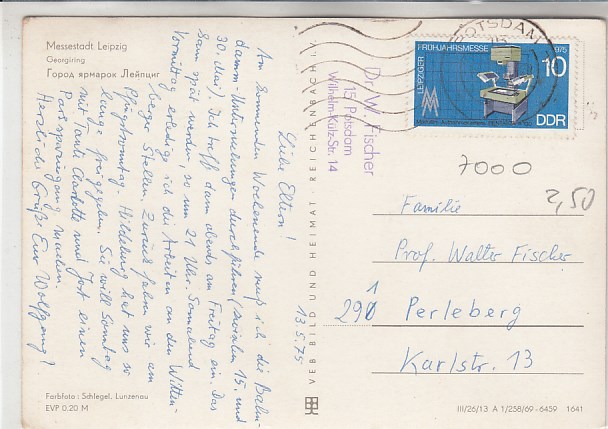 Messestadt Leipzig
Georgiring
Город ярмарок Лейпциг
13.5.75
Liebe Eltern!
Am kommenden Wochenende muß ich die Bahn-
damm-Untersuchungen durchführen (zwischen 15. und
30. Mai). Ich treff dann abends am Freitag ein. Das
kann spät werden, so um 21 Uhr. Sonnabend
Vormittag erledige ich die Arbeiten an den Witten-
berger Stellen. Zurück fahren wir am
Pfingstsonntag. Hildeburg hat uns so
lange freigegeben. Sie will Sonntag
mit Tante Charlotte und Jost einen
Parkspaziergang machen.
Herzliche Grüße Euer Wolfgang
Farbfoto: Schlegel, Lunzenau
EVP 0.20 M
VEB BILD UND HEIMAT REICHENBACH i. V.
Dr. W. Fischer
15 Potsdam
Wilhelm-Külz-Str. 14
POTSDAM
LEIPZIGER
FRÜHJAHRSMESSE
1975
10
DDR
7000
2,50
Familie
Prof. Walter Fischer
291 Perleberg
Karlstr. 13
III/26/13 A 1/258/69-6459 1641